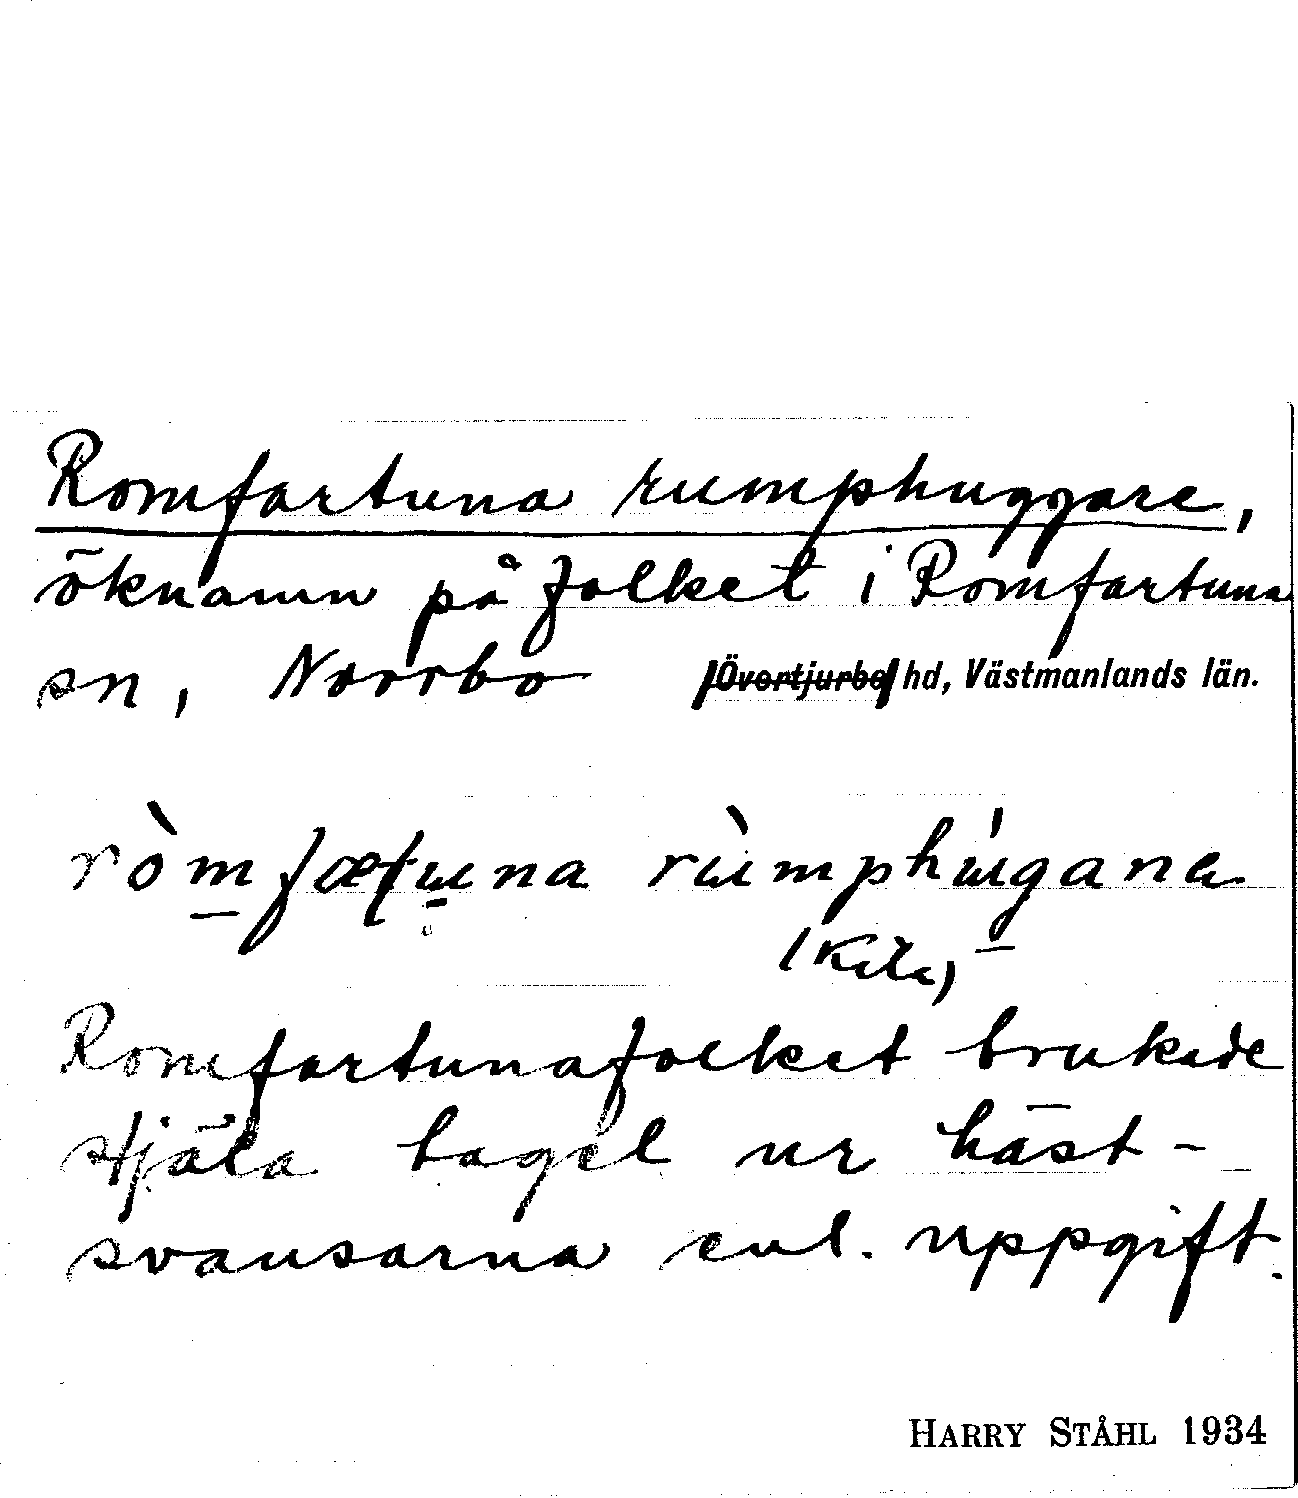 Romfartuna rumphuggare,
öknamn på folket i Romfartuna
sn, Norrbo [Övertjurbo] hd, Västmanlands län.
ròmfæṭuna rùmphúgana
Romfartunafolket brukade
stjäla tagel ur häst-
svansarna enl. uppgift.
HARRY STÅHL 1934